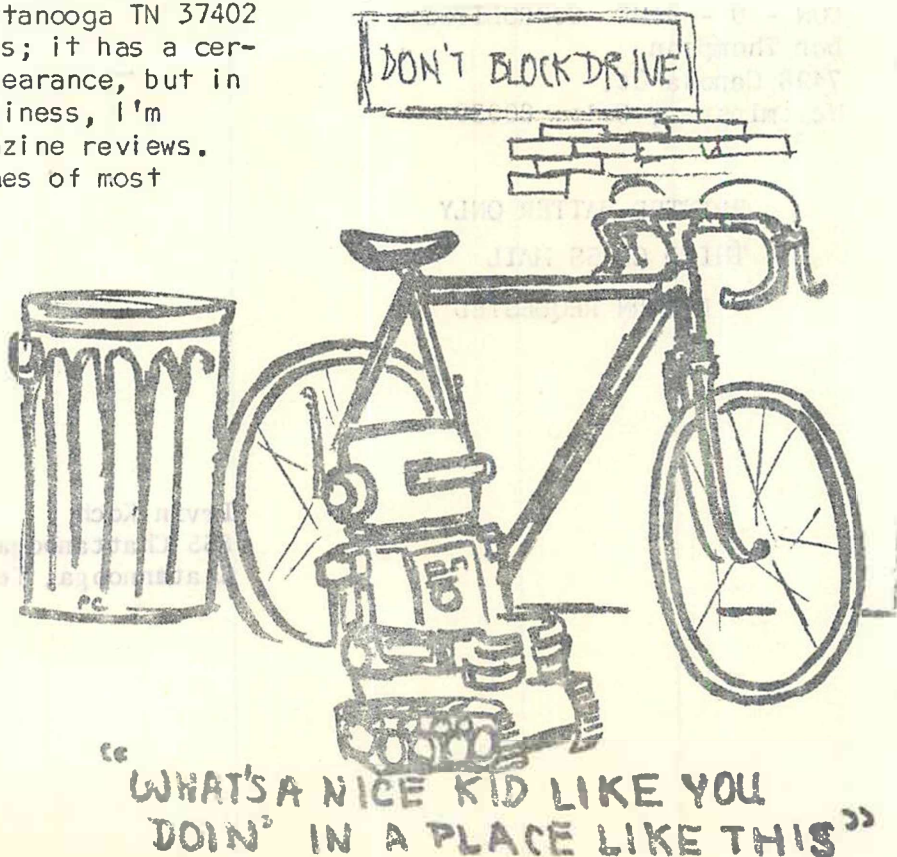 tanooga TN 37402
s; it has a cer-
earance, but in
iness, I'm
zine reviews.
nes of most
DON'T BLOCK DRIVE
PC
"WHAT'S A NICE KID LIKE YOU
DOIN' IN A PLACE LIKE THIS"